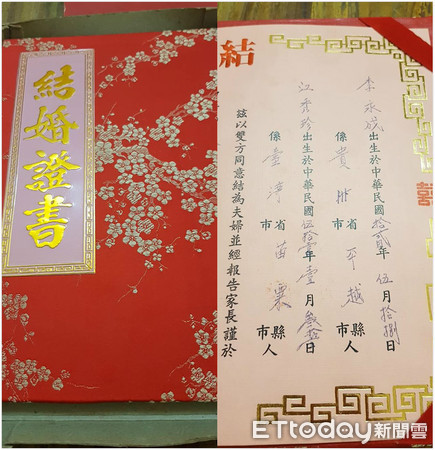 結婚證書
結
囍
李永成出生於中華民國拾貳年伍月拾捌日
係貴州省平越縣市人
江秀珍出生於中華民國伍拾壹年壹月叁拾日
係臺灣省苗栗縣市人
茲以雙方同意結為夫婦並經報告家長謹於
ETtoday新聞雲